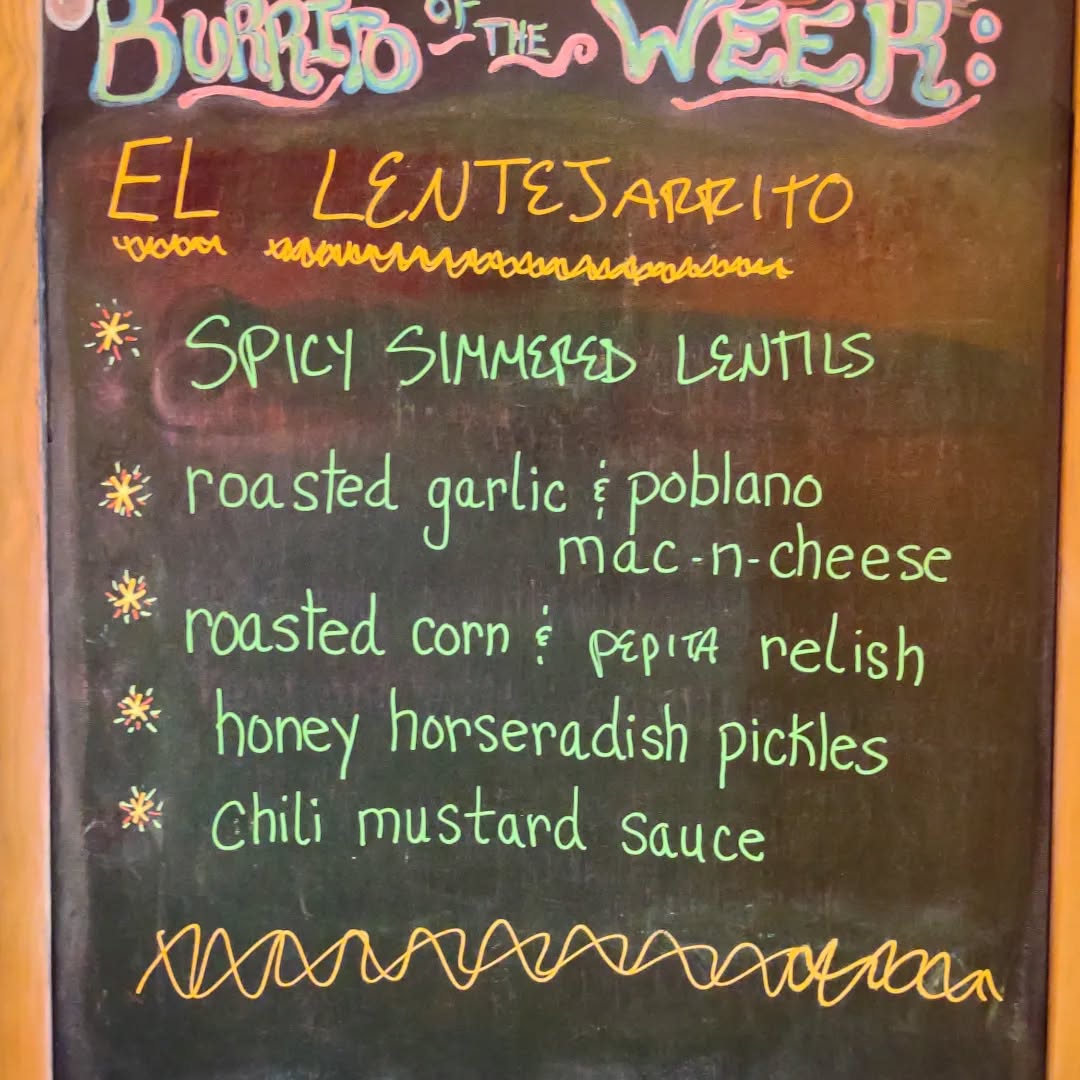 BURRITO OF THE WEEK:
EL LENTEJARRITO
* SPICY SIMMERED LENTILS
* roasted garlic & poblano
mac-n-cheese
* roasted corn & PEPITA relish
* honey horseradish pickles
* Chili mustard sauce